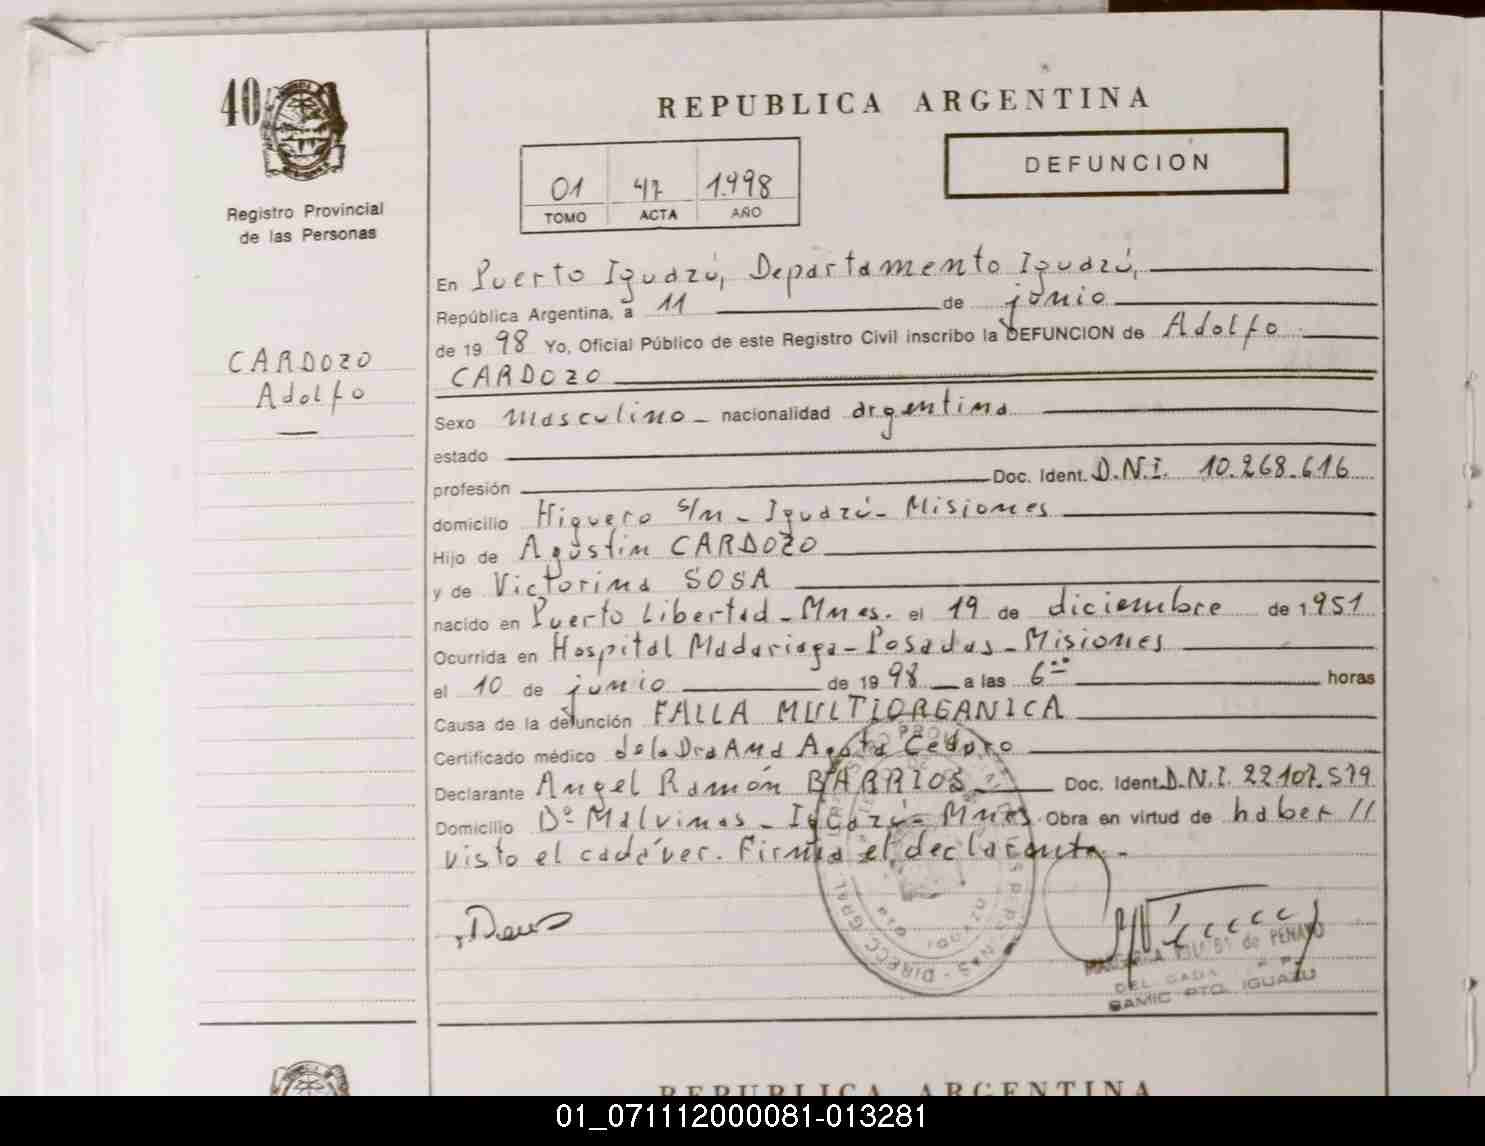 40
REPUBLICA ARGENTINA
DEFUNCION
01 47 1.998
TOMO ACTA AÑO
Registro Provincial
de las Personas
CARDOZO
Adolfo
En Puerto Iguazú, Departamento Iguazú,
República Argentina, a 11 de junio
de 19 98 Yo, Oficial Público de este Registro Civil inscribo la DEFUNCION de Adolfo
CARDOZO
Sexo masculino - nacionalidad argentina
estado
profesión Doc. Ident. D.N.I. 10.268.616
domicilio Higuero s/n - Iguazú - Misiones
Hijo de Agustin CARDOZO
y de Victorina SOSA
nacido en Puerto Libertad - Mnes. el 19 de diciembre de 1951
Ocurrida en Hospital Madariaga - Posadas - Misiones
el 10 de junio de 19 98 a las 6 horas
Causa de la defunción FALLA MULTIORGANICA
Certificado médico de la Dra Ana Agata
Declarante Angel Ramón BARRIOS Doc. Ident. D.N.I. 22.107.579
Domicilio Dº Malvinas - Iguazú - Mnes. Obra en virtud de haber //
visto el cadáver. Firma el declarante -
de PENAYO
DEL
SAMIC PTO. IGUAZU
REPUBLICA ARGENTINA
01_071112000081-013281